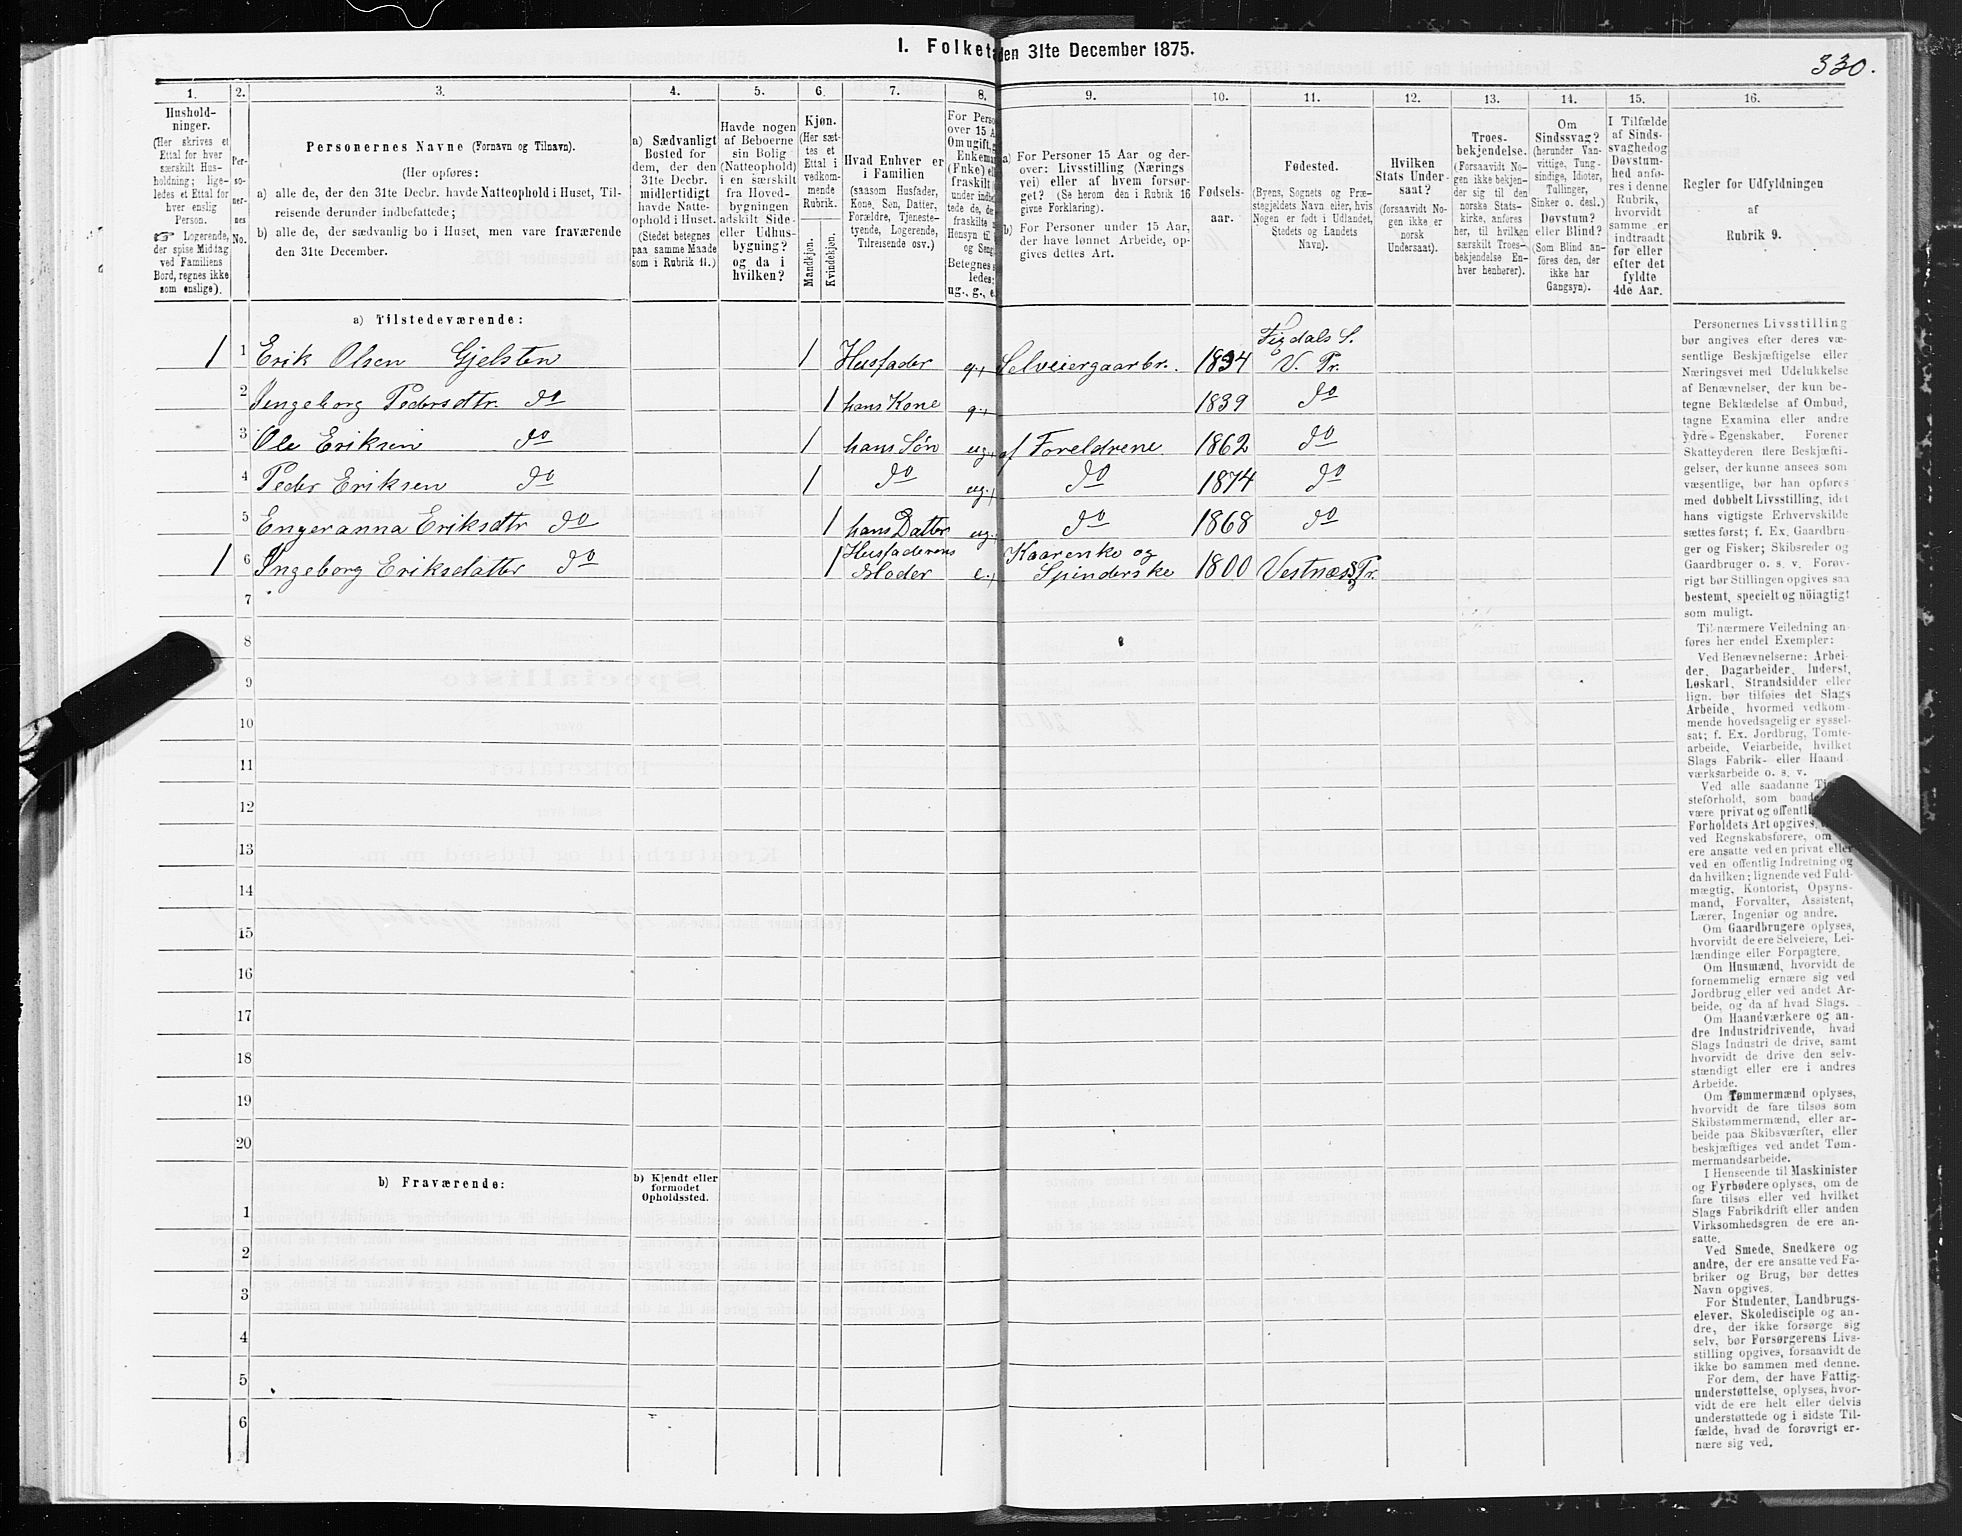 I. Folketæ
den 31te December 1875.
330.
1.
2.
3.
4.
5.
6.
7.
8.
9.
10.
11.
12.
13.
14.
15.
16.
Hushold-
ninger.
(Her skrives et
Ettal for hver
særskilt Hus-
holdning; lige-
ledes et Ettal for
hver enslig
Person.
☞ Logerende,
der spise Middag
ved Familiens
Bord, regnes ikke
som enslige).
Per-
so-
ner-
nes
No.
Personernes Navne (Fornavn og Tilnavn).
(Her opføres:
a) alle de, der den 31te Decbr. havde Natteophold i Huset, Til-
reisende derunder indbefattede;
b) alle de, der sædvanlig bo i Huset, men vare fraværende
den 31te December.
a) Sædvanligt
Bosted for
dem, der den
31te Decbr.
midlertidigt
havde Natte-
ophold i Huset.
(Stedet betegnes
paa samme Maade
som i Rubrik 11.)
Havde nogen
af Beboerne
sin Bolig
(Natteophold)
i en særskilt
fra Hoved-
bygningen
adskilt Side-
eller Udhus-
bygning?
og da i
hvilken?
Kjøn.
(Her sæt-
tes et
Ettal i
vedkom-
mende
Rubrik.
Mandkjøn.
Kvindekjøn.
Hvad Enhver er
i Familien
(saasom Husfader,
Kone, Søn, Datter,
Forældre, Tjeneste-
tyende, Logerende,
Tilreisende osv.)
For Perso
over 15 A
Om ugift, g
Enkema
(Enke) el
fraskilt
under indbe
tede de, de
fraskilte
Hensyn til
og Seng
Betegnes s
ledes:
ug., g., e.
a) For Personer 15 Aar og der-
over: Livsstilling (Nærings
vei) eller af hvem forsør-
get? (Se herom den i Rubrik 16
givne Forklaring).
b) For Personer under 15 Aar,
der have lønnet Arbeide, op-
gives dettes Art.
Fødsels-
aar.
Fødested.
(Byens, Sognets og Præ-
stegjeldets Navn eller, hvis
Nogen er født i Udlandet,
Stedets og Landets
Navn).
Hvilken
Stats Under-
saat?
(forsaavidt No-
gen ikke er
norsk
Undersaat).
Troes-
bekjendelse.
(Forsaavidt No-
gen ikke bekjen-
der sig til den
norske Stats-
kirke, anføres
her, til hvilken
særskilt Troes-
bekjendelse En-
hver henhører).
Om
Sindssvag?
(herunder Van-
vittige, Tung-
sindige, Idioter,
Tullinger,
Sinker o. desl.)
Døvstum?
eller Blind?
(Som Blind an-
føres den, der
ikke har
Gangsyn).
I Tilfælde
af Sinds-
svaghed og
Døvstum-
hed anfø-
res i denne
Rubrik,
hvorvidt
samme er
indtraadt
før eller
efter det
fyldte
4de Aar.
Regler for Udfyldningen
af
Rubrik 9.
a) Tilstedeværende:
1 1 Erik Olsen Gjelsten 1 Husfader g., Selveiergaarbr. 1834 Figdals S.
V. Pr.
2 Ingeborg Pedersdtr. do 1 hans Kone g., 1839 do
3 Ole Eriksen do 1 hans Søn ug., af Foreldrene 1862 do
4 Peder Eriksen do 1 do ug., do 1874 do
5 Engeranna Eriksdtr do 1 hans Datter ug., do 1868 do
1 6 Ingeborg Eriksdatter do 1 Husfaderens
Moder e., Kaarenke og
Spinderske 1800 Vestnæs Pr.
7
8
9
10
11
12
13
14
15
16
17
18
19
20
b) Fraværende:
b) Kjendt eller
formodet
Opholdssted.
1
2
3
4
5
6
Personernes Livsstilling
bør angives efter deres væ-
sentlige Beskjæftigelse eller
Næringsvei med Udelukkelse
af Benævnelser, der kun be-
tegne Beklædelse af Ombud,
tagne Examina eller andre
ydre Egenskaber. Forener
Skatteyderen flere Beskjæfti-
gelser, der kunne ansees som
væsentlige, bør han opføres
med dobbelt Livsstilling, idet
hans vigtigste Erhvervskilde
sættes først; f. Ex. Gaardbru-
ger og Fisker; Skibsreder og
Gaardbruger o. s. v. Forøv-
rigt bør Stillingen opgives saa
bestemt, specielt og nöiagtigt
som muligt.
Til nærmere Veiledning an-
føres her endel Exempler:
Ved Benævnelserne: Arbei-
der, Dagarbeider, Inderst,
Løskarl, Strandsidder eller
lign. bør tilføies det Slags
Arbeide, hvormed vedkom-
mende hovedsagelig er syssel-
sat; f. Ex. Jordbrug, Tomte-
arbeide, Veiarbeide, hvilket
Slags Fabrik- eller Haand
værksarbeide o. s. v.
Ved alle saadanne Tje
steforhold, som baade
være privat og offentlig
Forholdets Art opgives,
ved Regnskabsførere, om
ere ansatte ved en privat eller
ved en offentlig Indretning og
da hvilken; lignende ved Fuld-
mægtig, Kontorist, Opsyns-
mand, Forvalter, Assistent,
Lærer, Ingeniør og andre.
Om Gaardbrugere oplyses,
hvorvidt de ere Selveiere, Lei-
lændinge eller Forpagtere.
Om Husmænd, hvorvidt de
fornemmelig ernære sig ved
Jordbrug eller ved andet Ar-
beide, og da af hvad Slags.
Om Haandværkere og an-
dre Industridrivende, hvad
Slags Industri de drive, samt
hvorvidt de drive den selv-
stændigt eller ere i andres
Arbeide.
Om Tømmermænd oplyses,
hvorvidt de fare tilsøs som
Skibstømmermænd, eller ar-
beide paa Skibsværfter, eller
beskjæftiges ved andet Tøm-
mermandsarbeide.
I Henseende til Maskinister
og Fyrbødere oplyses, om de
fare tilsøs eller ved hvilket
Slags Fabrikdrift eller anden
Virksomhedsgren de ere an-
satte.
Ved Smede, Snedkere og
andre, der ere ansatte ved Fa-
briker og Brug, bør dettes
Navn opgives.
For Studenter, Landbrugs-
elever, Skoledisciple og an-
dre, der ikke forsørge sig
selv, bør Forsørgerens Livs-
stilling opgives, forsaavidt de
ikke bo sammen med denne.
For dem, der have Fattig-
understøttelse, oplyses, hvor-
vidt de ere helt eller delvis
understøttede og i sidste Til-
fælde, hvad de forøvrigt er-
nære sig ved.